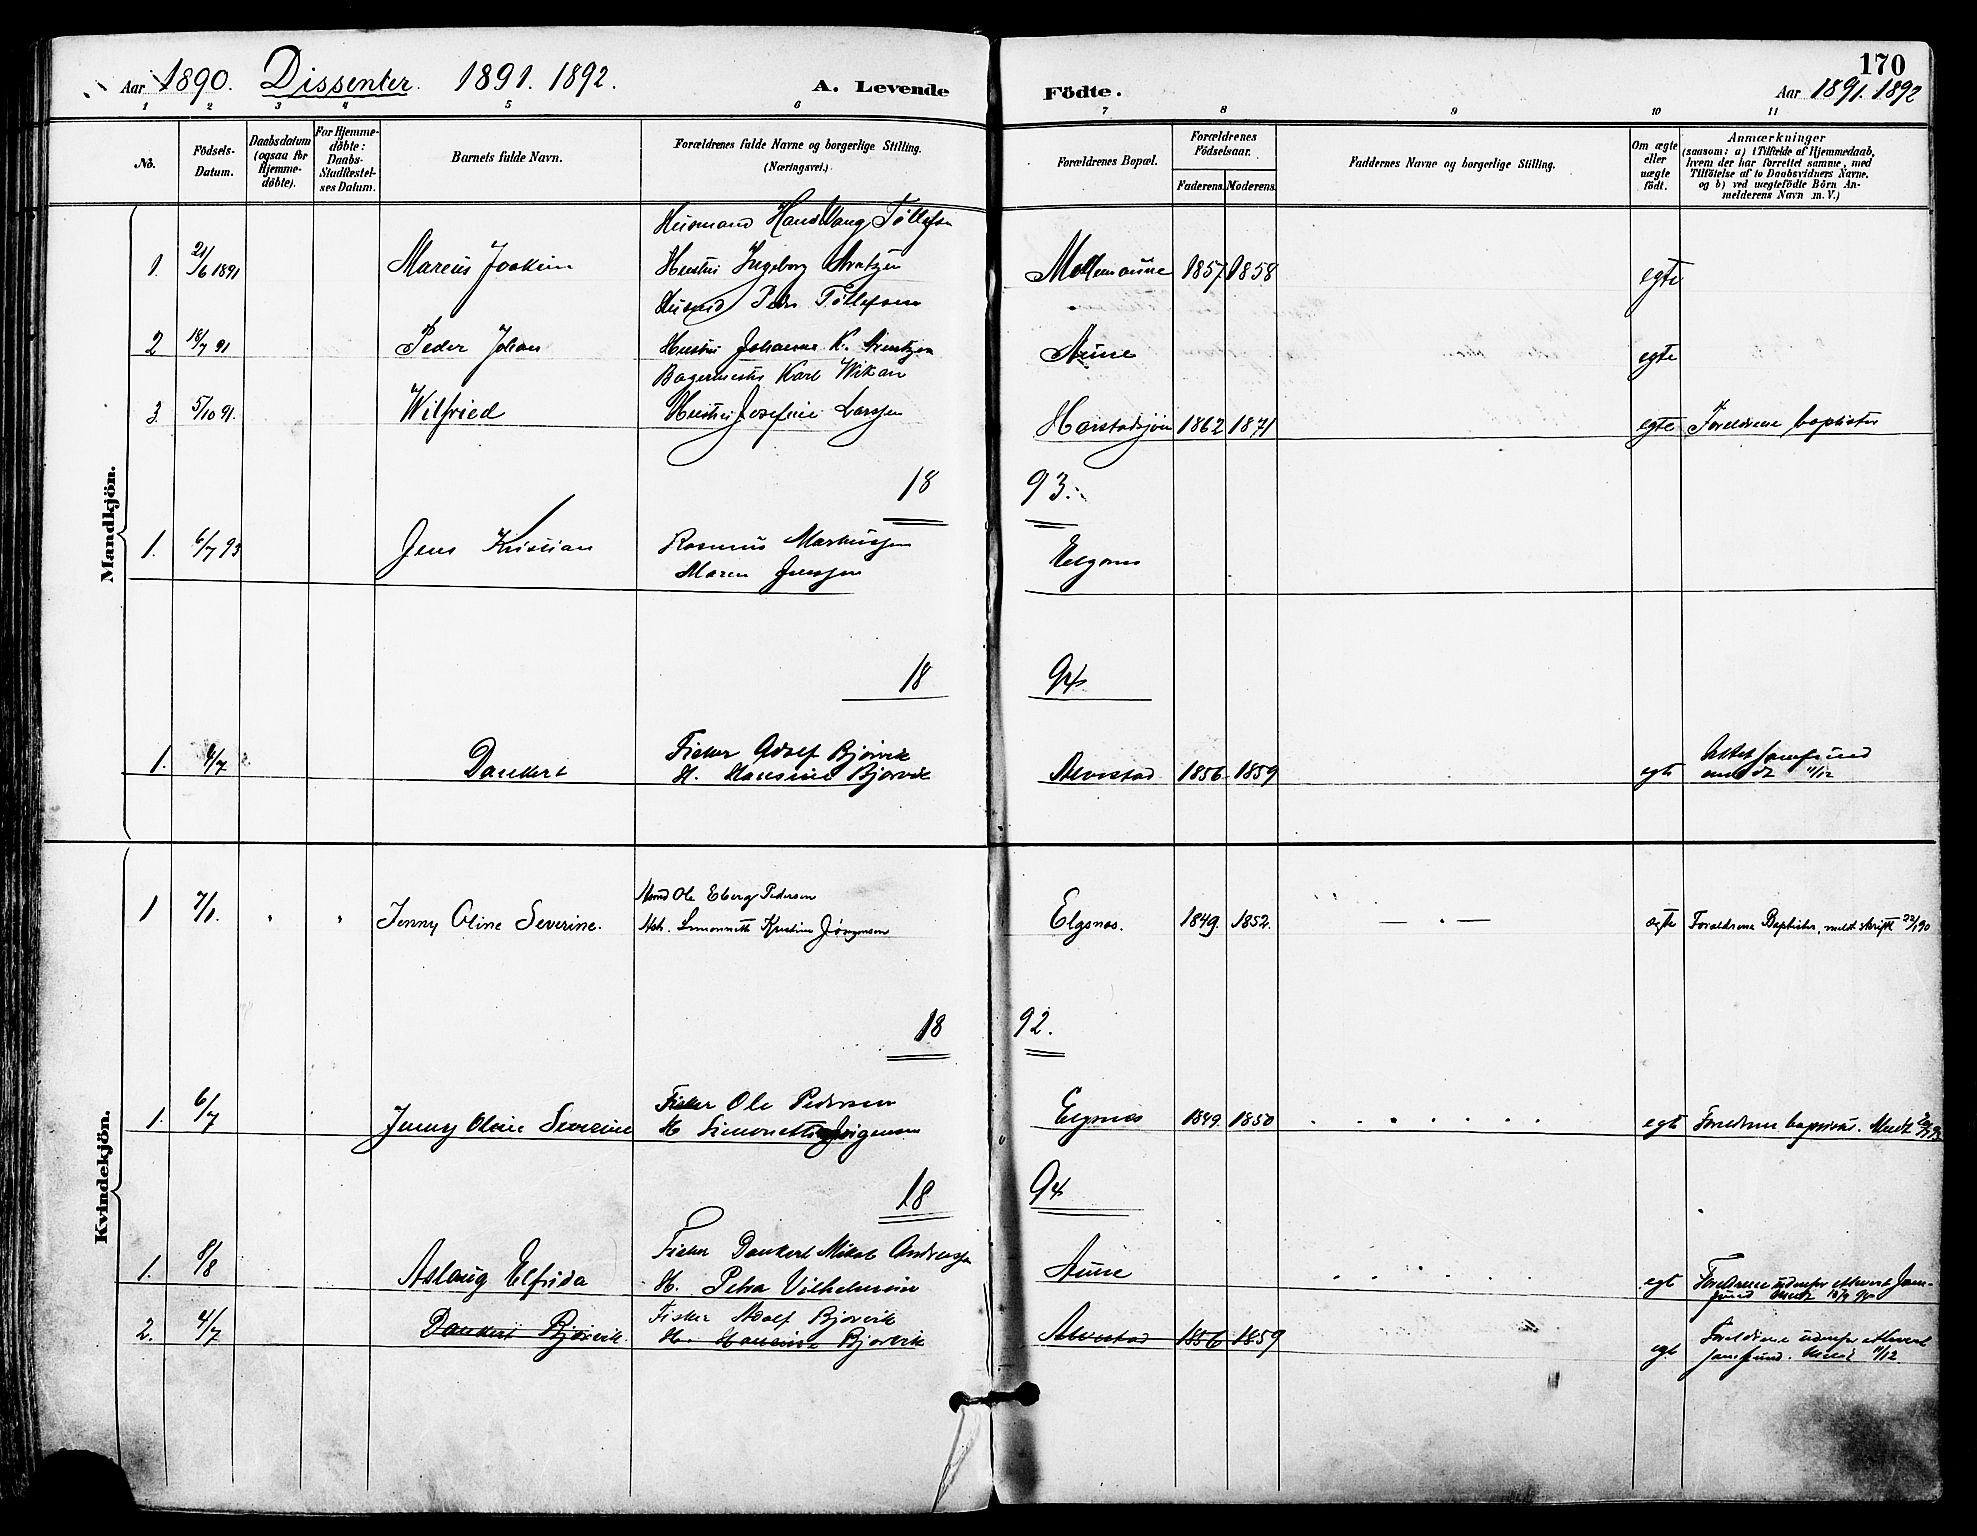 170
Aar 1890. Dissenter. 1891. 1892. A. Levende Födte. Aar 1891. 1892
1 2 3 4 5 6 7 8 9 10 11
No.
Födsels-
Datum.
Daabsdatum
(ogsaa for
Hjemme-
döbte).
For Hjemme-
döbte:
Daabs-
Stadfæstel-
ses Datum.
Barnets fulde Navn.
Forældrenes fulde Navne og borgerlige Stilling.
(Næringsvei.)
Forældrenes Bopæl.
Forældrenes
Födselsaar.
Faderens. Moderens.
Faddernes Navne og borgerlige Stilling.
Om ægte
eller
uægte
födt.
Anmærkninger
(saasom: a) i Tilfælde af Hjemmedaab,
hvem der har forrettet samme, med
Tilföielse af to Daabsvidners Navne.
og b) ved uægtefödte Börn An-
melderens Navn m. V.)
Mandkjön.
Husmand Hans Tøllefsen
1. 21/6 1891 Marius Joakim Hustru Ingeborg 1857 1858 egte
Peder Tøllefsen
2 18/7 91 Peder Johan Hustru Johanna K. Aune egte
Bagermester Karl Wikan
3. 5/10 91. Wilfried Hustru Josefine Larssen Harstadsjøn 1862 1871 egte Foreldrene baptister
18 93.
1. 6/7 93 Jens Kristian Rasmus Markussen
Maren Jenssen Elgsnes
18 94
1. 4/7 Dankert Fisker Adolf Bjørvik
H. Hansine Bjørvik Alvestad 1856 1859 egte
11/12
Kvindekjön.
1 7/1. " " Jenny Oline Severine. Ole Eberg Pedersen
Kristine Jørgensen Elgsnæs. 1849. 1852. — " — ægte Forældrene Baptister, meldt skriftl 22/1 90
18 92.
1. 6/7 Jenny Oline Severine Fisker Ole Pedersen
H Simonette Jørgensen Elgsnes 1849. 1850 egte Foreldrene baptister. Meldt
18 94
1. 8/8 Aslaug Elfrida Fisker Dankert Mikal Andreassen
H. Petra Vilhelmine Aune egte Foreldrene udenfor ethvert Sam-
fund Meldt
2. 4/7 Dankert Bjørvik. Fisker Adolf Bjørvik
H. Hansine Bjørvik Alvestad 1856 1859 egte Foreldrene udenfor ethvert
samfund. Meldt 11/12